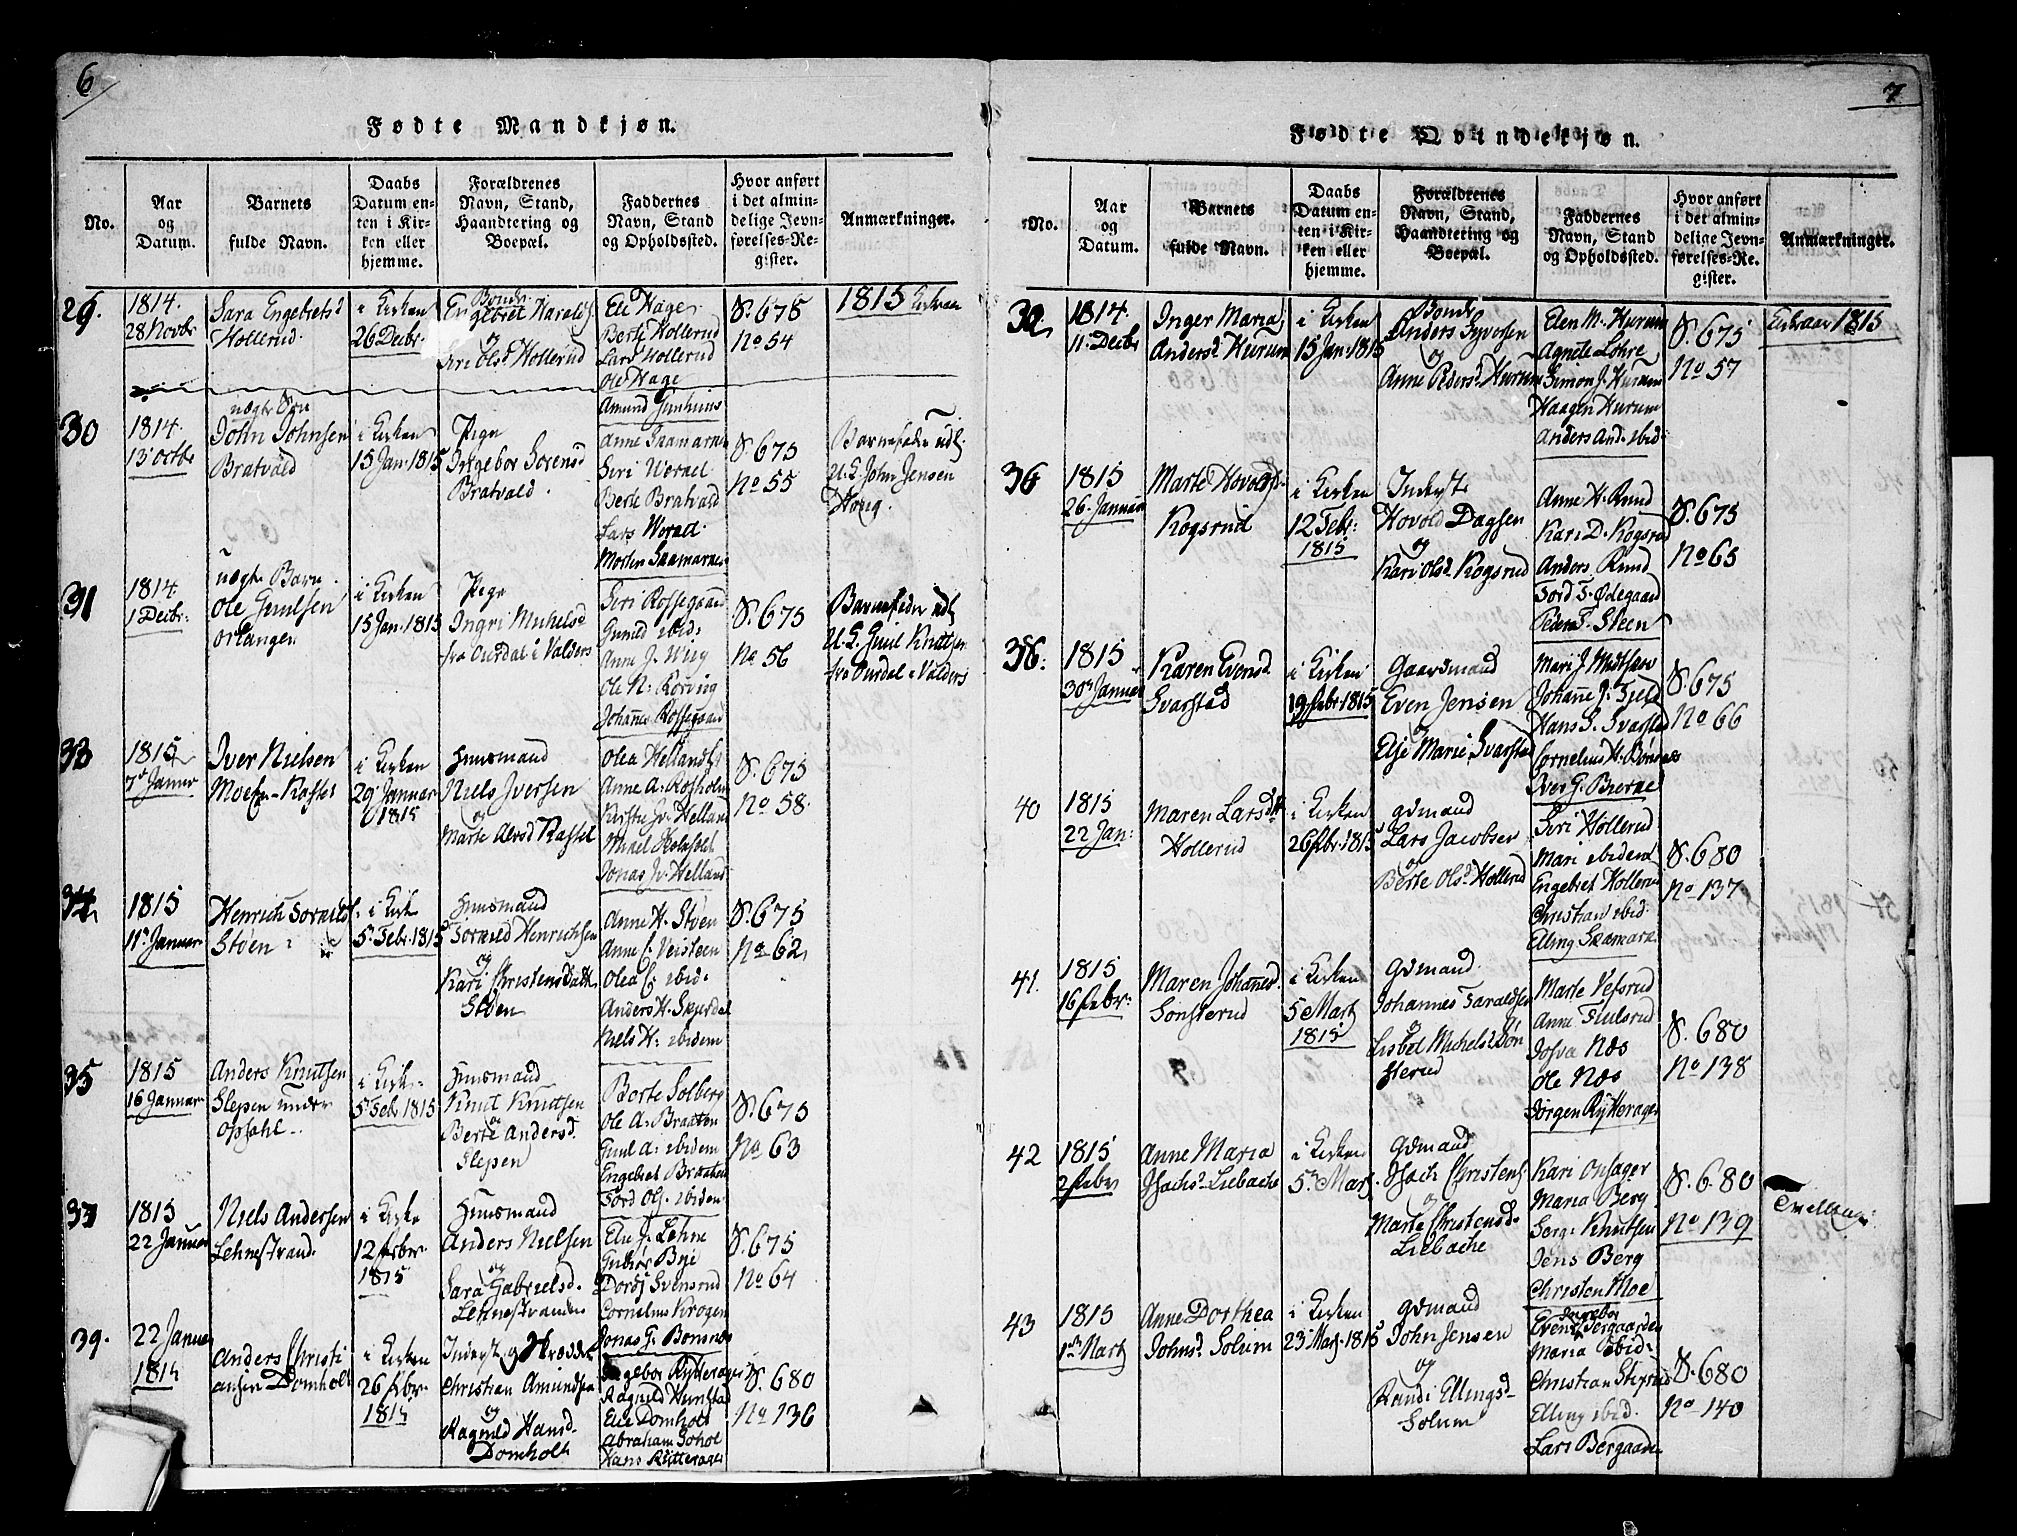 6
Fødte Mandkjøn.
No.
Aar
og
Datum.
Barnets
fulde Navn.
Daabs
Datum en-
ten i Kir-
ken eller
hjemme.
Forældrenes
Navn, Stand,
Haandtering og
Boepæl.
Faddernes
Navn, Stand
og Opholdssted.
Hvor anført
i det almin-
delige Jevn-
førelses-Re-
gister.
Anmærkninger.
29.
1814.
28 Novbr
Sara Engebretsd
Hollerud.
i Kirken
26 Decbr.
Bonde
Engebret Harald
og
Siri Olsd Hollerud
Eli Hage
Berte Hollerud
Lars Hollerud
Ole Hage
S. 675
No 54
1815
30
1814.
13 Octbr
uægte Søn
John Johnsen
Bratvald
i Kirken
15 Jan. 1815
Pige
Ingebor Sorensd
Bratvald.
Anne Saamarn
Siri Worael
Berte Bratvald
Lars Worael.
Morten Saamarn
S. 675
No 55
Barnefader udl.
U. C. John Jensen
Houg.
31
1814.
1 Decbr.
uægte Barn
Ole Gunilsen
i Kirken
15 Jan. 1815
Pige
Ingri Michelsd
fra Ourdal i Valders
Siri Rossegaard
Gunild ibid:
Anne J. Wiig
Ole N. Rørvig
Johannes Rossegaard
S. 675
No 56
Barnefader udl
fra Ourdal i Valders
33
1815
7d Januar
Iver Nielsen
i Kirken
29 Januar
1815
Huusmand
Niels Iversen
og
S. 675
No 58.
34
1815
11d Januar
Støen
i Kirk
5 Febr. 1815
Huusmand
Torald Henrichsen
og
Kari Christensdatt
Støen
Anne H. Støen
Anne C. Veisteen
Olea C. ibid.
Niels H. ibidem
S. 675
No 62
35
1815
16 Januar
Anders Knutsen
Slepen under
Opsahl.
i Kirk.
5 Febr 1815
Huusmand
Knut Knutsen
og
Berte Andersd.
Slepen
Berte Solberg
Ole A. Braaten
Gunil A. ibidem
Engebret Braaten
Tord Ols. ibidem
S. 675
No 63
37
1815
22 Januar
Niels Andersen
Lehnestrand.
i Kirke
12 Febr.
1815
Huusmand
Anders Nielsen
og
Sara Gabrielsd.
Lehnestranden
Eli J. Lehne
Dordj Svensrud
Cornelius Krogen
Jonas G. Bonsnes
S. 675
No 64
39.
22 Januar
1815
Anders Christi
ansen Domholt
i Kirken
26 Febr.
1815
Christian Amundsen
og
Ragnild Hansd.
Domholt
Ingebor Rytterager
Ragnild Hurstad
Elie Domholt
Abraham Sohol
Hans Rytterager
S. 680
No 136
7
Fødte Qvindekjøn.
No.
Aar
og
Datum.
Barnets
fulde Navn.
Daabs
Datum en-
ten i Kir-
ken eller
hjemme.
Forældrenes
Navn, Stand,
Haandtering og
Boepæl.
Faddernes
Navn, Stand
og Opholdssted.
Hvor anført
i det almin-
delige Jevn-
førelses-Re-
gister.
Anmærkninger.
32
1814.
11. Decbr
Inger Maria
Andersd Hurum
i Kirken
15 Jan. 1815
Bonde
Anders Syversen
og
Anne Pedersd. Hurum
Elen M. Hurum
Agnete Lohre
Simon J. Hurum
Haagen Hurum
Anders And. ibid.
S. 675
No 57
1815
36
1815
26. Januar
Kogsrud
i Kirken
12 Febr.
1815
Inderst
Hovold Dagsen
og
Kari Olsd. Kogsrud
Anne H. Rud
Kari D. Kogsrud
Anders Rud
Tord T. Ødegaard
Peder T. Steen
S. 675
No 65
1815
30 Januar
Karen Evensd
Svarstad
i Kirken
19 Febr. 1815
Gaardmand
Even Jensen
og
Else Marie Svarstad
Johanne J. Field
Hans S. Svarstad
Cornelius H. Bonsnes
S. 675
No 66
40
1815
22 Jan.
Maren Larsd
Hollerud
i Kirken
26 Febr. 1815
Gdmand
Lars Jacobsen
og
Berte Olsd Hollerud
Siri Hollerud
Mari ibidem
Engebret Hollerud
Christian ibid.
S. 680
No 137
41.
1815
16 Febr.
Maren Johannesd
Sonsterud
i Kirken
5 Marts
1815
Gdmand
Johannes Taraldsen
og
Lisbet Michelsd. Søn
sterud
Marte Vefsrud
Josva Næs
Ole Næs
Jørgen Rytterager
S. 680
No 138
42
1815
2 Febr
Anne Maria
Isachsd. Liebache
i Kirken
5 Mart
Gdmand
Isach Christens
og
Marte Christensd.
Liebache
Kari Onsager
Maria Berg
Knutsen
Jens Berg
Christen Moe
S. 680
No 139
Tvelling
43
1815
1 Marts
Anne Dorthea
Johnsd. Solum
i Kirken
23 Marts 1815
Gdmand
John Jensen
og
Randi Ellingsd.
Solum
Maria ibid:
Elling ibid.
Lars Bergaard
S. 680
No 140